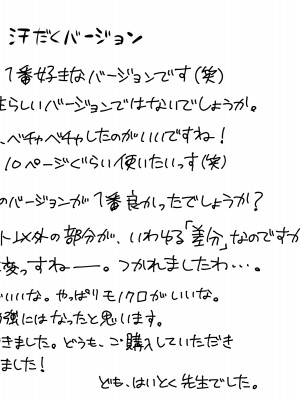 汗だくバージョン
1番好きなバージョンです(笑)
らしいバージョンではないでしょうか。
、ベチャベチャしたのがいいですね!
10ページぐらい使いたいっす(笑)
のバージョンが1番良かったでしょうか?
ト以外の部分が、いわゆる「差分」なのですか
変っすねー。つかれましたわ…。
いいな。やっぱりモノクロがいいな。
強にはなったと思います。
きました。どうも、ご購入していただき
ました!
ども、はいとく先生でした。